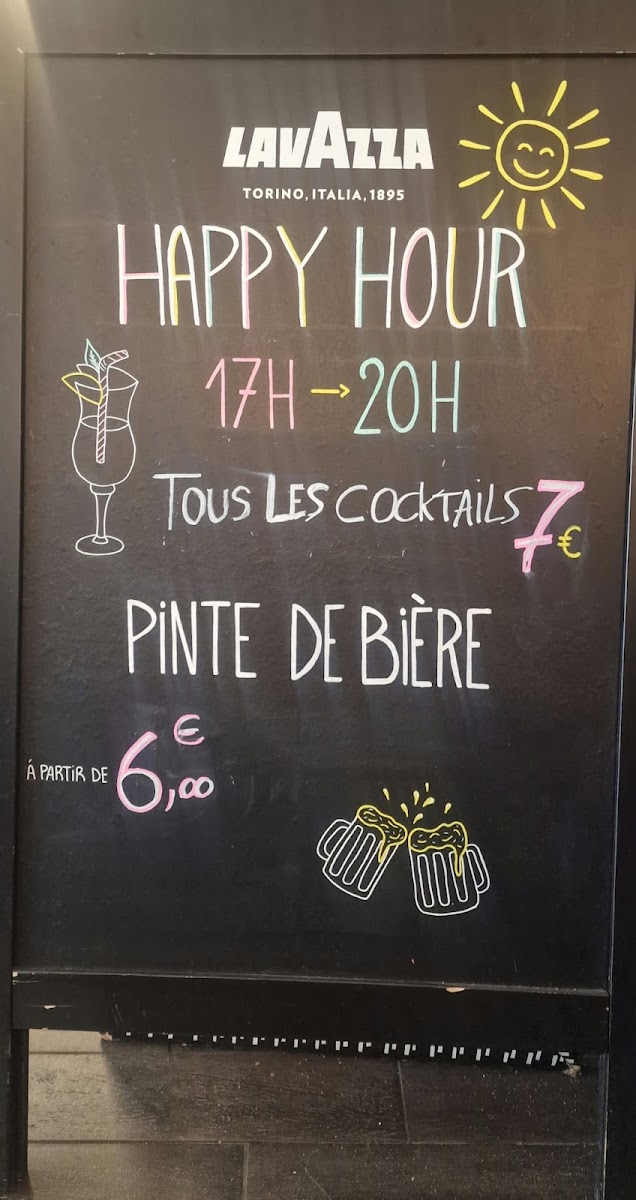 LAVAZZA
TORINO, ITALIA, 1895
HAPPY HOUR
17H → 20H
TOUS LES COCKTAILS 7€
PINTE DE BIÈRE
Á PARTIR DE 6,00€